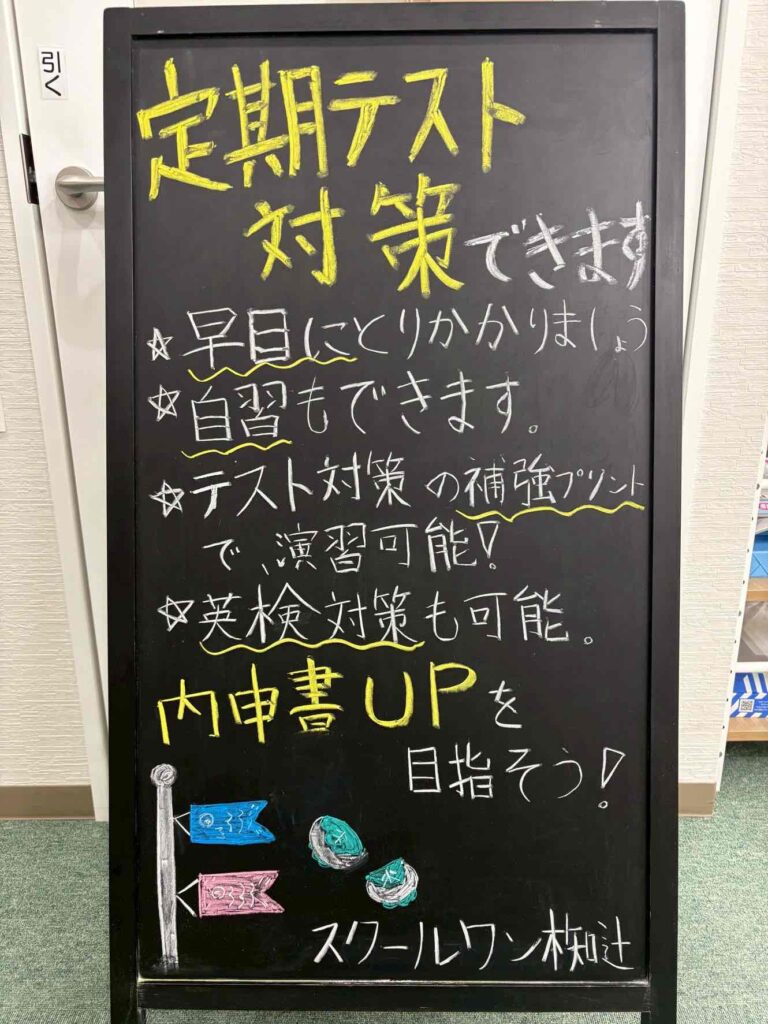 引く
定期テスト
対策できます
☆早目にとりかかりましょう
☆自習もできます。
☆テスト対策の補強プリント
で、演習可能!
☆英検対策も可能。
内申書UPを
目指そう!
スクールワン椥辻